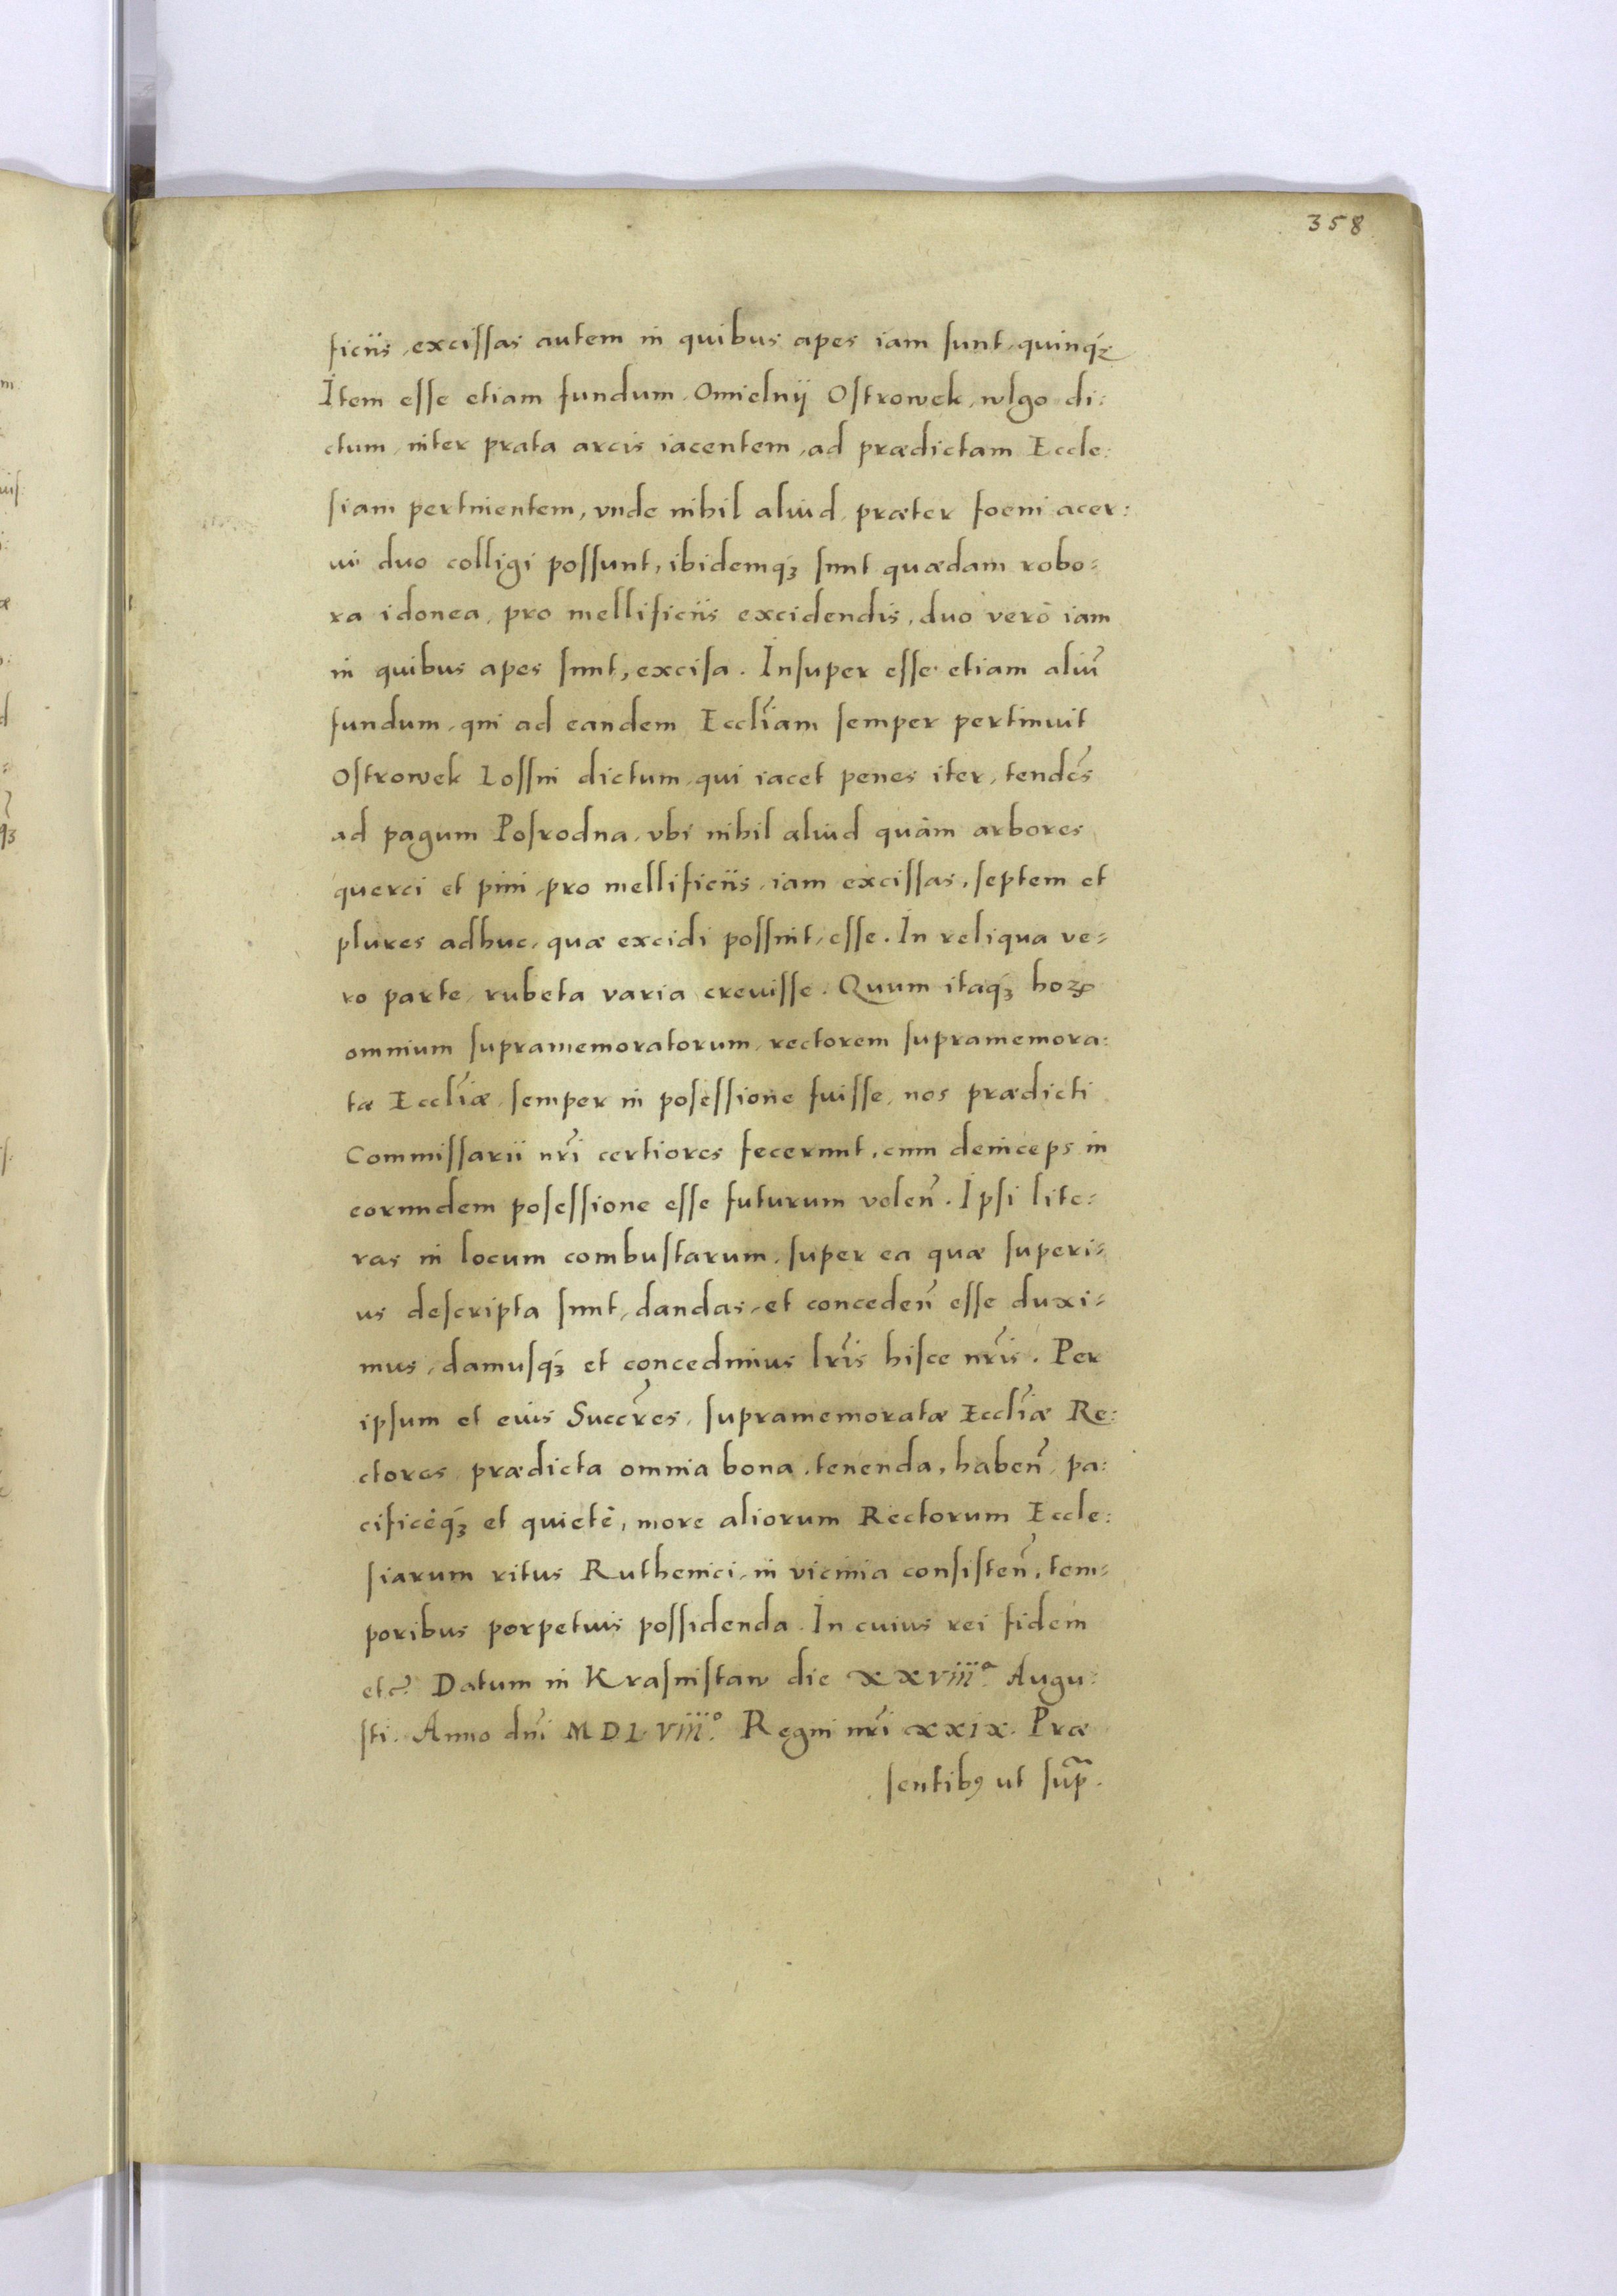 358
ficiis, excissas autem in quibus apes iam sunt, quinq́ꝫ
Item esse etiam fundum, Omielnÿ Ostrowek, wlgo di:
ctum, inter prata arcis iacentem, ad prædictam Eccle:
siam pertinentem, vnde nihil aliud, præter foeni acer:
ui duo colligi possunt, ibidemq́ꝫ sunt quædam robo:
ra idonea, pro mellificiis excidendis, duo verò iam
in quibus apes sunt, excisa. Insuper esse etiam aliũ
fundum, qui ad eandem Eccl̃iam semper pertinuit
Ostrowek Lossni dictum, qui iacet penes iter, tendẽs
ad pagum Posrodna, vbi nihil aliud quàm arbores
querci et pini, pro mellificiis, iam excissas, septem et
plures adhuc, quæ excidi possint, esse. In reliqua ve:
ro parte, rubeta varia creuisse. Quum itaq́ꝫ hoꝝ
omnium supramemoratorum, rectorem supramemora:
tæ Eccl̃iæ, semper in posessione fuisse, nos prædicti
Commissarii nr̃i certiores fecerunt, eum deinceps in
eorundem posessione esse futurum volen̄. Ipsi lite:
ras in locum combustarum, super ea quæ superi:
us descripta sunt, dandas, et conceden̄ esse duxi:
mus, damusq́ꝫ et concedimus lr̃is hisce nr̃is. Per
ipsum et eius Succr̃es, supramemoratæ Eccl̃iæ Re:
ctores, prædicta omnia bona, tenenda, haben̄, pa:
cificèq́ꝫ et quietè, more aliorum Rectorum Eccle:
siarum ritus Ruthenici, in vicinia consisten̄, tem:
poribus perpetuis possidenda. In cuius rei fidem
etc̃. Datum in Krasnistaw die XXVIIIᵃ. Augu:
sti. Anno dn̄i MDLVIIIº. Regni nr̃i XXIX. Præ
sentibꝰ ut sup̃.